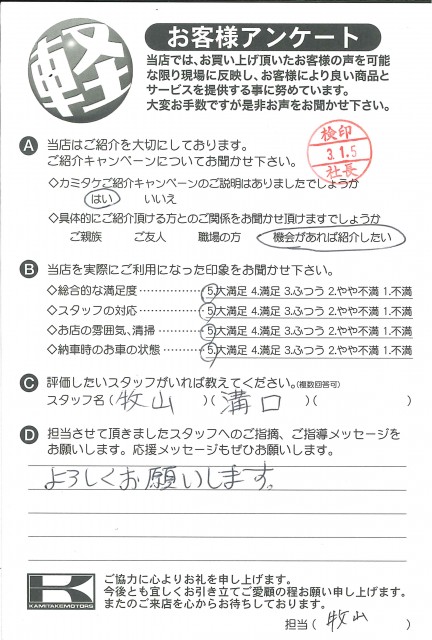 軽
お客様アンケート
当店では、お買い上げ頂いたお客様の声を可能
な限り現場に反映し、お客様により良い商品と
サービスを提供する事に努めています。
大変お手数ですが是非お声をお聞かせ下さい。
検印
3.1.5
社長
A 当店はご紹介を大切にしております。
ご紹介キャンペーンについてお聞かせ下さい。
◇カミタケご紹介キャンペーンのご説明はありましたでしょうか
はい いいえ
◇具体的にご紹介頂ける方とのご関係をお聞かせ頂けますでしょうか
ご親族 ご友人 職場の方 機会があれば紹介したい
B 当店を実際にご利用になった印象をお聞かせ下さい。
◇総合的な満足度……………5.大満足 4.満足 3.ふつう 2.やや不満 1.不満
◇スタッフの対応……………5.大満足 4.満足 3.ふつう 2.やや不満 1.不満
◇お店の雰囲気、清掃………5.大満足 4.満足 3.ふつう 2.やや不満 1.不満
◇納車時のお車の状態………5.大満足 4.満足 3.ふつう 2.やや不満 1.不満
C 評価したいスタッフがいれば教えてください。(複数回答可)
スタッフ名(牧山)(溝口)( )
D 担当させて頂きましたスタッフへのご指摘、ご指導メッセージを
お願いします。応援メッセージもぜひお願いします。
よろしくお願いします。
K
KAMITAKEMOTORS
ご協力に心よりお礼を申し上げます。
今後とも宜しくお引き立てご愛顧の程お願い申し上げます。
またのご来店を心からお待ちしております。
担当(牧山)